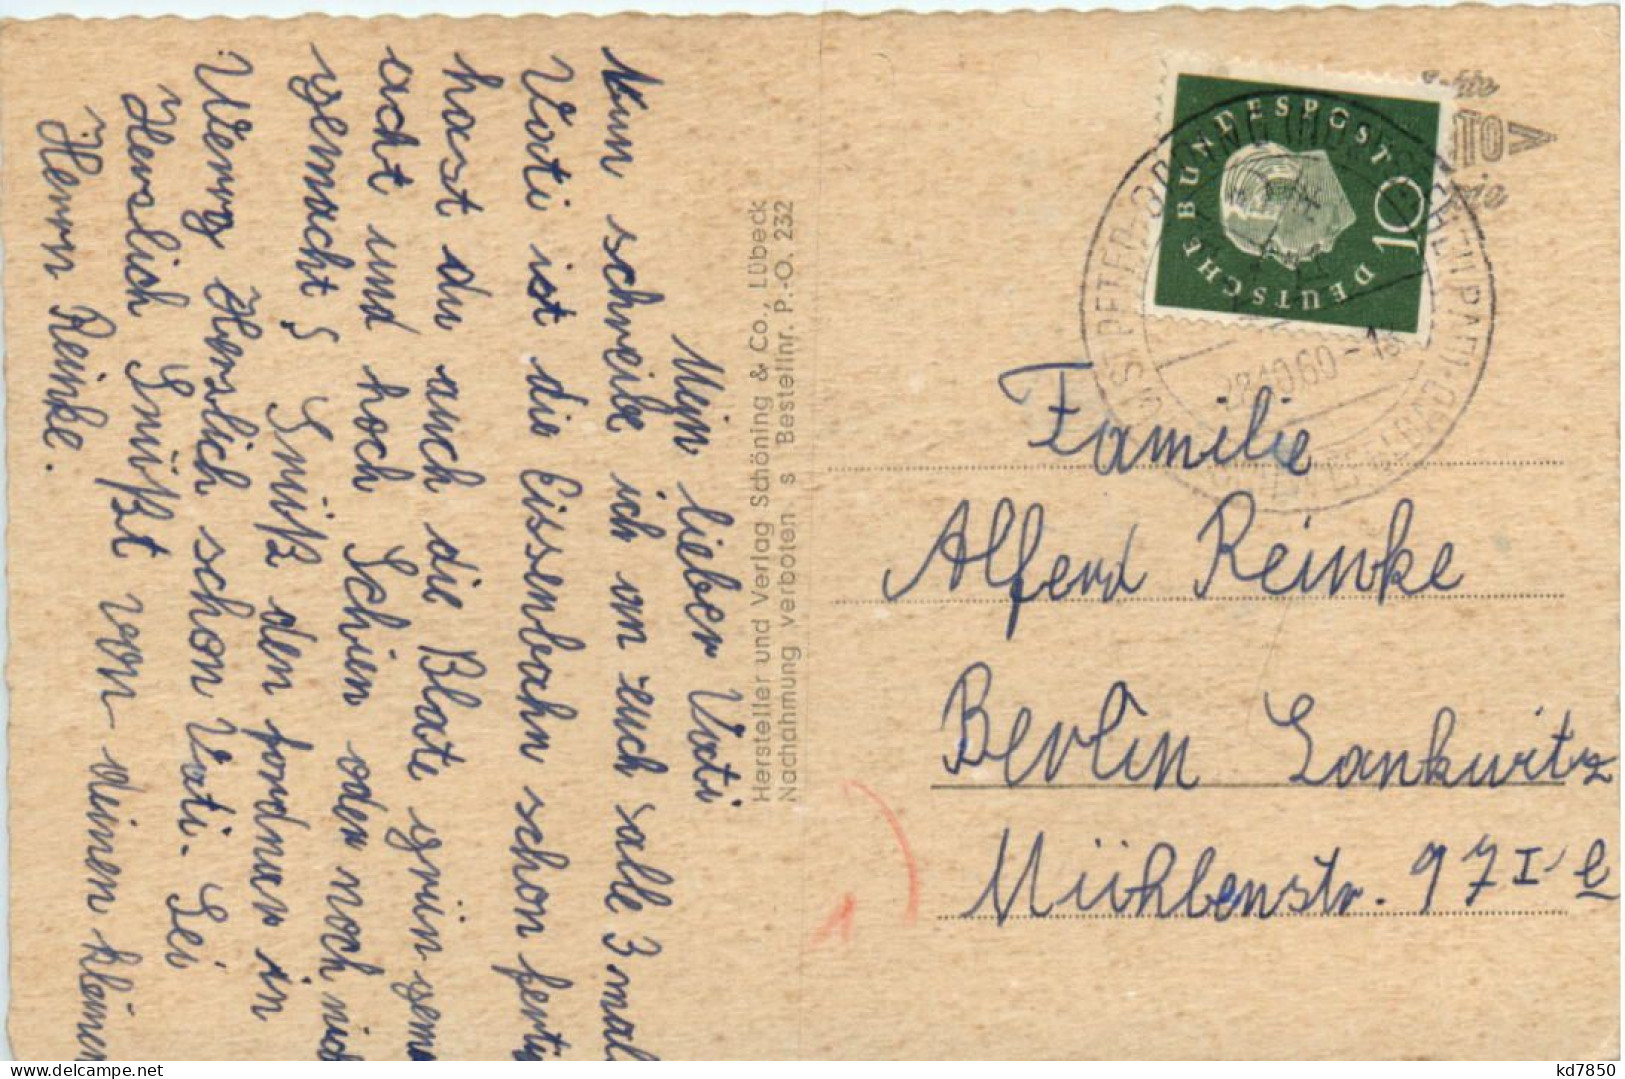 Mein lieber Vati
Nun schreibe ich an euch alle 3 mal
Vati ist die Eissenbahn schon ferti
hast du auch die Blate grün gema
acht und hoch Schien oder noch nich
gemacht? Grüßt den fordner in
Herslich schon Vati. Sei
Herslich Grüßt von deinen kleinen
Herrn Reinke.
Hersteller und Verlag Schöning & Co., Lübeck
Nachahmung verboten s Bestellnr. P.-O. 232
DEUTSCHE BUNDESPOST
10
ST PETER-ORDING
22.10.60-18
Familie
Alferd Reinke
Berlin Lankwitz
Mühlenstr. 97 I l
1
kd7850